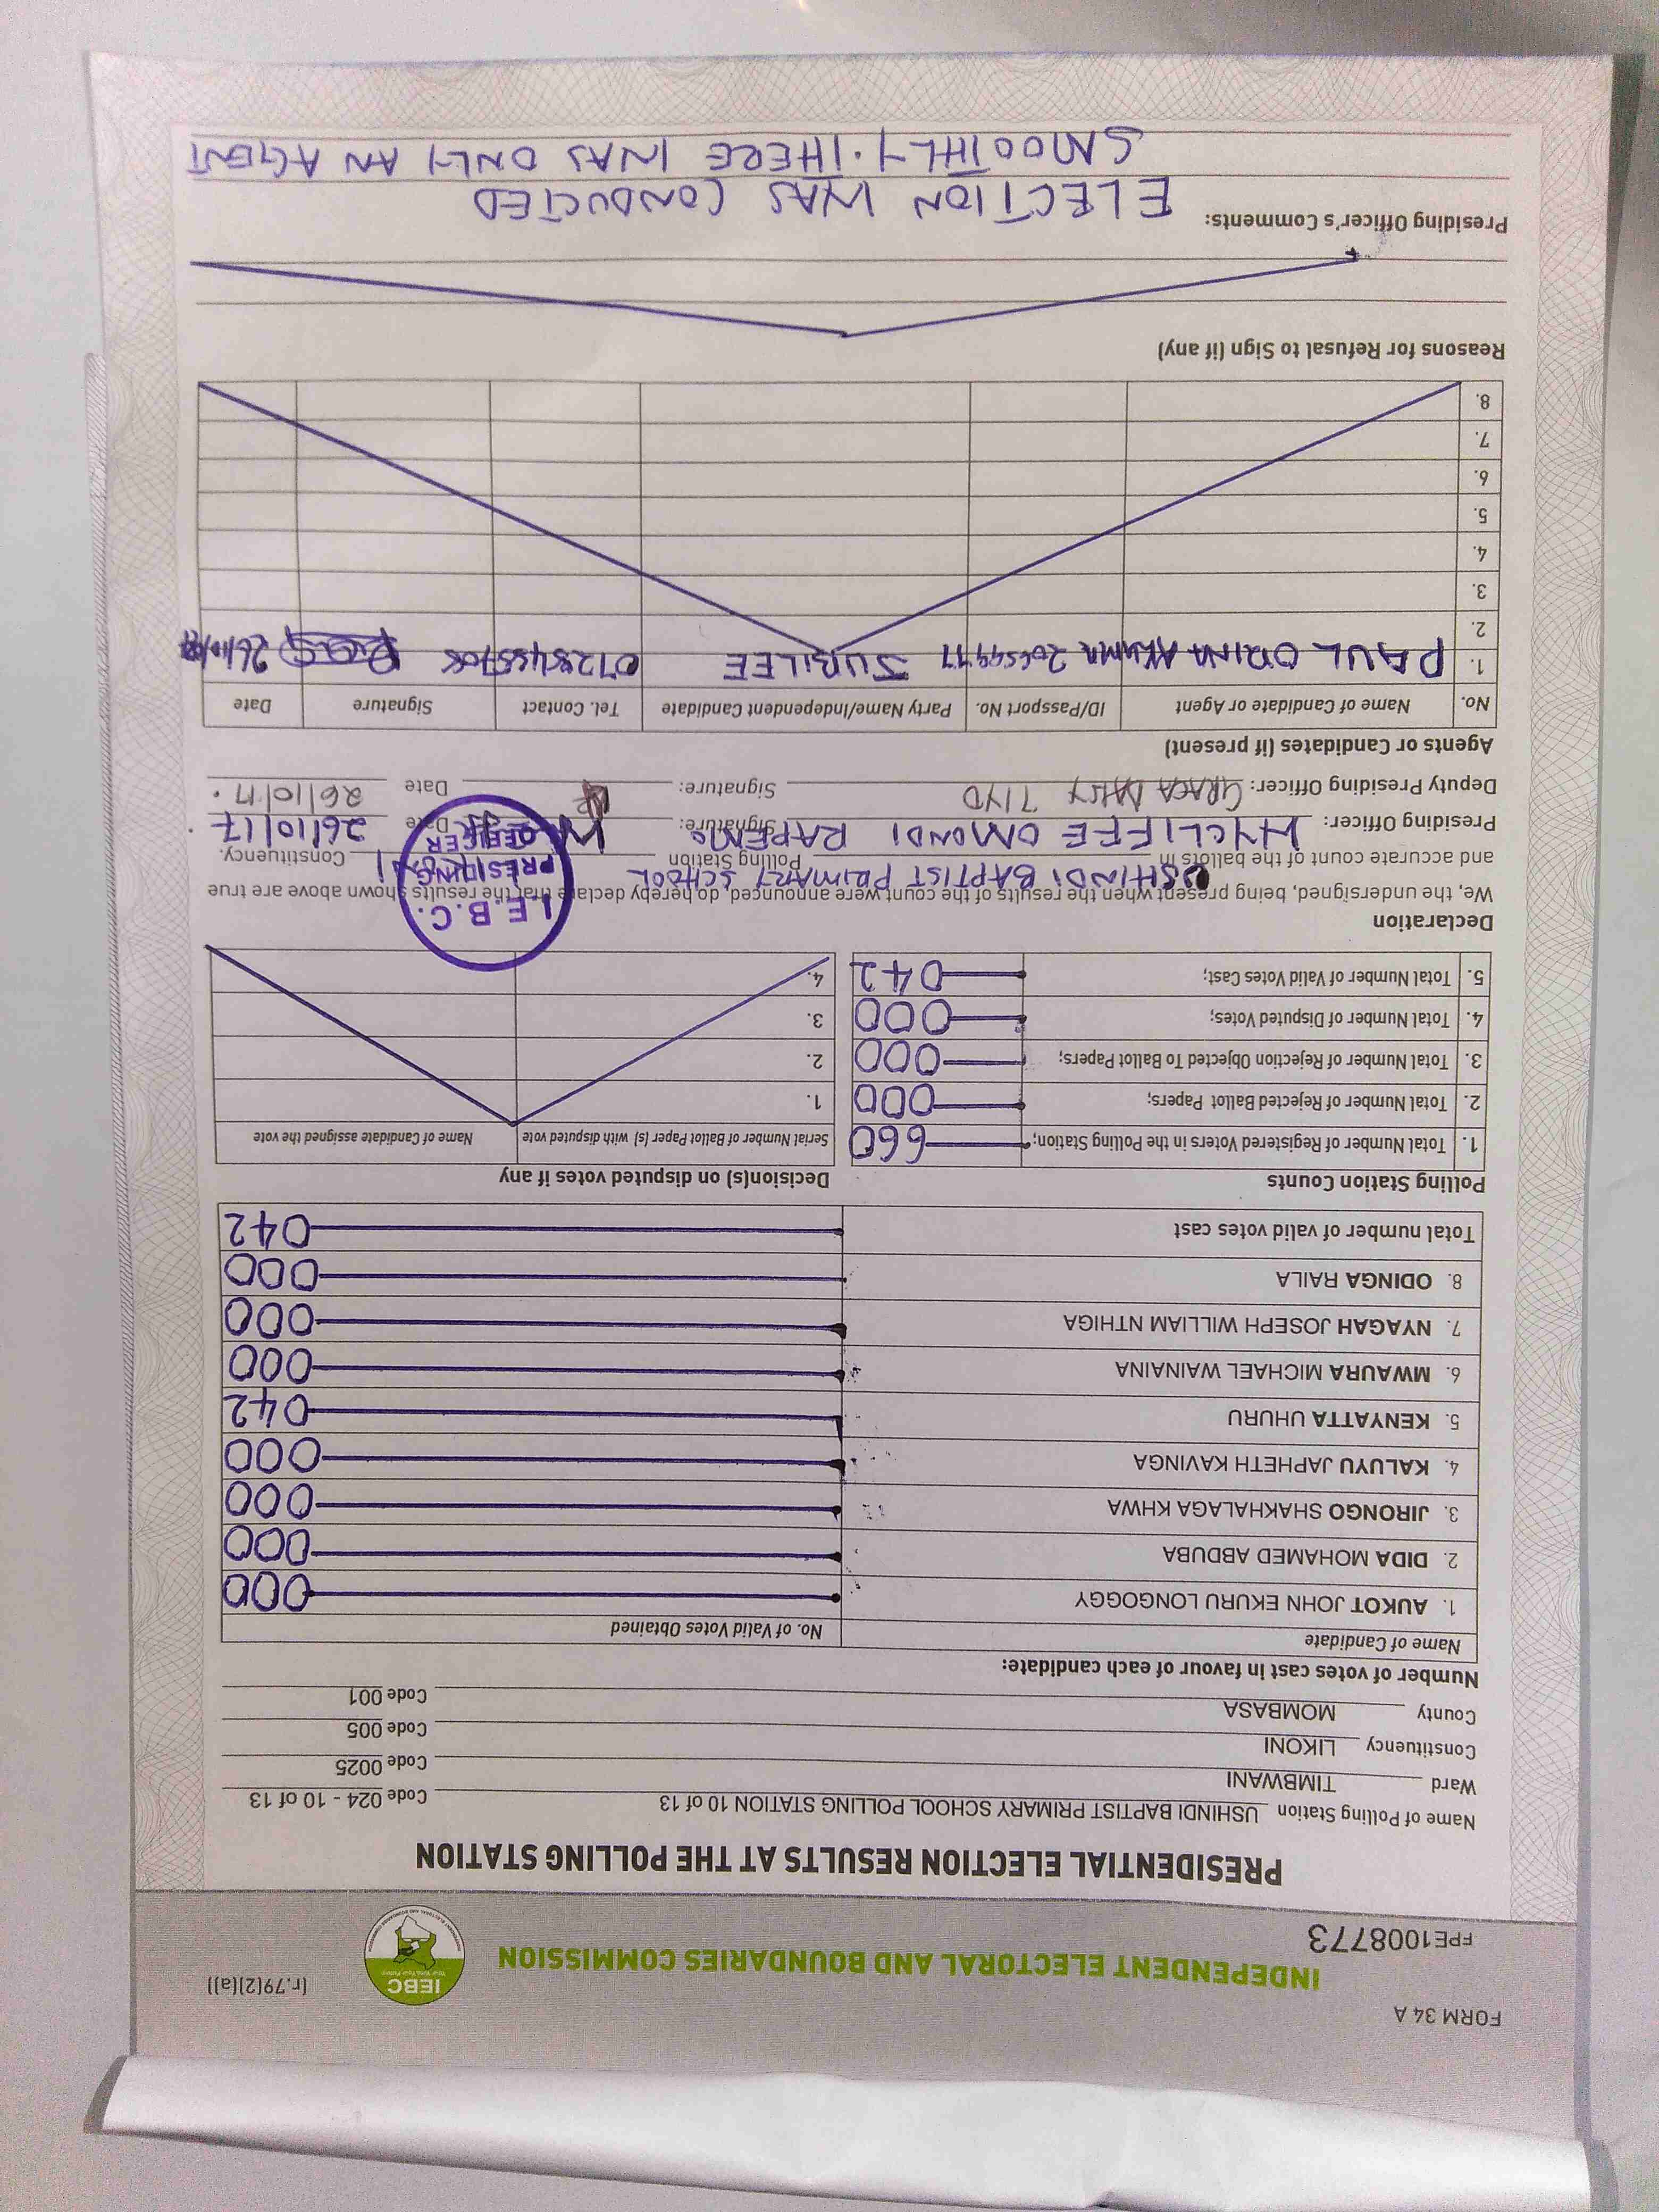 FORM 34 A
(r.79(2)(a))
INDEPENDENT ELECTORAL AND BOUNDARIES COMMISSION
IEBC
FPE1008773
PRESIDENTIAL ELECTION RESULTS AT THE POLLING STATION
Name of Polling Station USHINDI BAPTIST PRIMARY SCHOOL POLLING STATION 10 of 13 Code 024 - 10 of 13
Ward TIMBWANI Code 0025
Constituency LIKONI Code 005
County MOMBASA Code 001
Number of votes cast in favour of each candidate:
Name of Candidate No. of Valid Votes Obtained
1. AUKOT JOHN EKURU LONGOGGY 000
2. DIDA MOHAMED ABDUBA 000
3. JIRONGO SHAKHALAGA KHWA 000
4. KALUYU JAPHETH KAVINGA 000
5. KENYATTA UHURU 042
6. MWAURA MICHAEL WAINAINA 000
7. NYAGAH JOSEPH WILLIAM NTHIGA 000
8. ODINGA RAILA 000
Total number of valid votes cast 042
Polling Station Counts
1. Total Number of Registered Voters in the Polling Station; 660
2. Total Number of Rejected Ballot Papers; 000
3. Total Number of Rejection Objected To Ballot Papers; 000
4. Total Number of Disputed Votes; 000
5. Total Number of Valid Votes Cast; 042
Decision(s) on disputed votes if any
Serial Number of Ballot Paper (s) with disputed vote Name of Candidate assigned the vote
1.
2.
3.
4.
Declaration
We, the undersigned, being present when the results of the count were announced, do hereby declare that the results shown above are true
and accurate count of the ballots in USHINDI BAPTIST PRIMARY SCHOOL Polling Station Constituency.
I.E.B.C.
PRESIDING
OFFICER
Presiding Officer: WYCLIFFE OMONDI RAPEMO Signature: Date 26/10/17.
Deputy Presiding Officer: Signature: Date 26/10/17.
Agents or Candidates (if present)
No. Name of Candidate or Agent ID/Passport No. Party Name/Independent Candidate Tel. Contact Signature Date
1. PAUL JUBILEE
2.
3.
4.
5.
6.
7.
8.
Reasons for Refusal to Sign (if any)
Presiding Officer's Comments: ELECTION WAS CONDUCTED
SMOOTHLY. THERE WAS ONLY AN AGENT